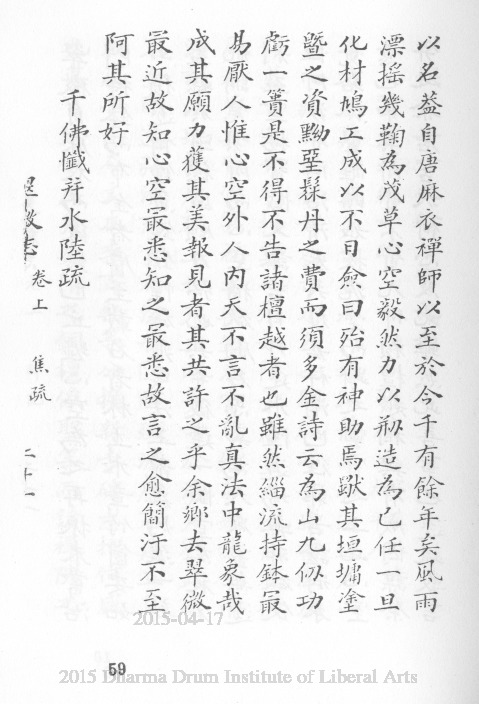 以名葢自唐麻衣禪師以至於今千有餘年矣風雨
漂搖幾鞠為茂草心空毅然力以剏造為己任一旦
化材鳩工成以不日僉曰殆有神助焉歎其垣墉塗
曁之資黝堊髹丹之費而須多金詩云為山九仭功
虧一簣是不得不告諸檀越者也雖然緇流持鉢最
易厭人惟心空外人內天不言不亂真法中龍象哉
成其願力獲其美報見者其共許之乎余鄉去翠微
最近故知心空最悉知之最悉故言之愈簡汙不至
阿其所好
千佛懺并水陸疏
卷上
焦疏
二十一
59
2015-04-17
2015 Dharma Drum Institute of Liberal Arts